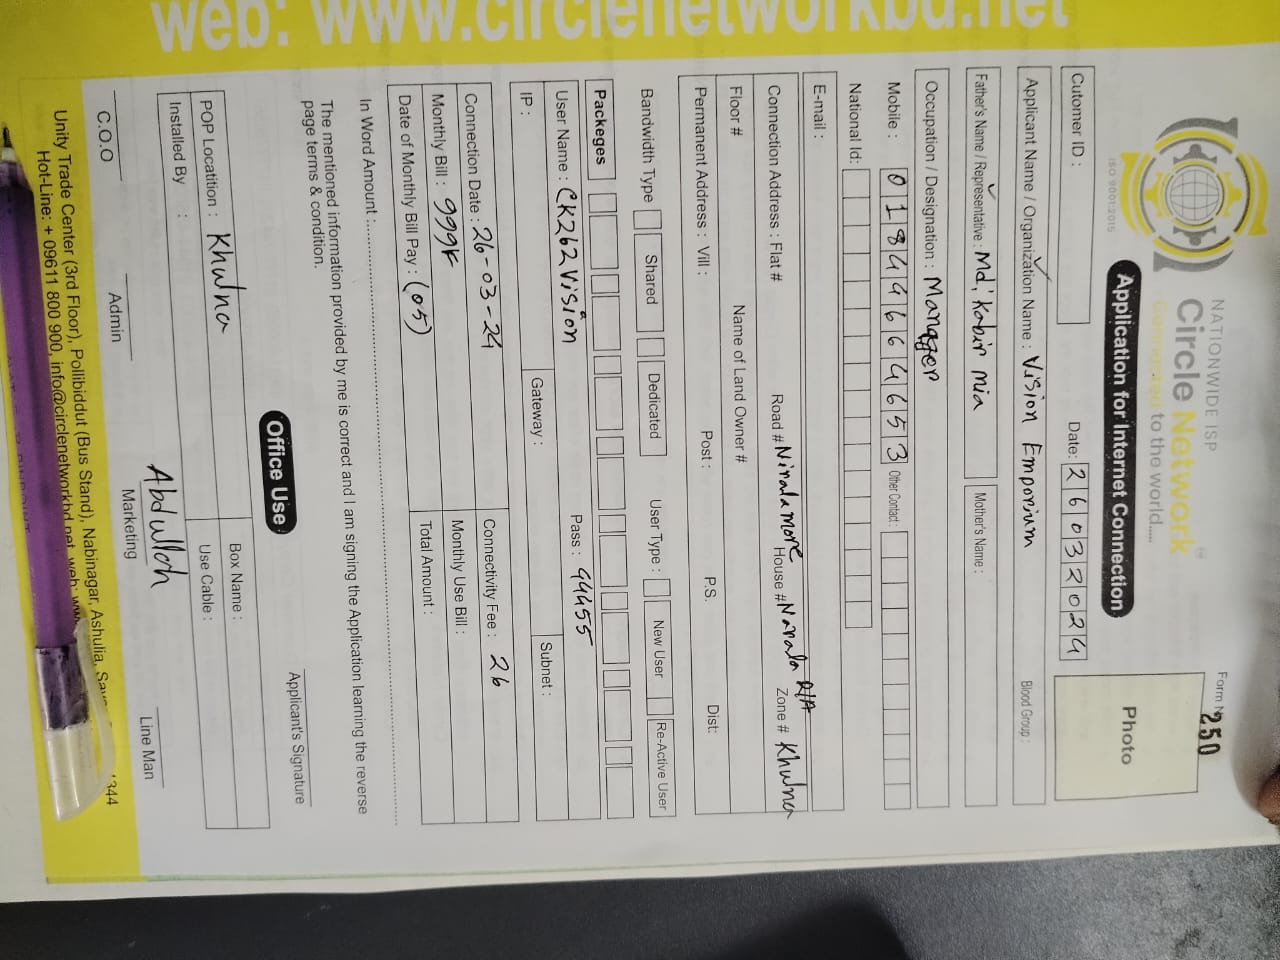 web: www.circlenetworkbd.net
Form N 250
NATIONWIDE ISP
Circle Network
Connected to the world.....
ISO 9001:2015
Application for Internet Connection
Photo
Cutomer ID : Date: 26032024
Applicant Name / Organization Name : Vision Emporium Blood Group :
Father's Name / Representative : Md, Kabir mia Mother's Name :
Occupation / Designation : Manager
Mobile : Other Contact :
National Id:
E-mail :
Connection Address : Flat # Road # Nirala more House # Narala R/A Zone # Khulna
Floor # Name of Land Owner #
Permanent Address : Vill : Post : P.S. Dist:
Bandwidth Type Shared Dedicated User Type : New User Re-Active User
Packeges
User Name : CK262Vision Pass : 44455
IP : Gateway : Subnet :
Connection Date : 26-03-24 Connectivity Fee : 26
Monthly Bill : Monthly Use Bill :
Date of Monthly Bill Pay : (05) Total Amount :
In Word Amount :
The mentioned information provided by me is correct and I am signing the Application learning the reverse
page terms & condition.
Applicant's Signature
Office Use
POP Locatition : Khulna Box Name :
Installed By : Use Cable :
Abdullah
C.O.O Admin Marketing Line Man
Unity Trade Center (3rd Floor), Pollibiddut (Bus Stand), Nabinagar, Ashulia, 1344
Hot-Line: + 09611 800 900, info@circlenetworkbd.net, web: